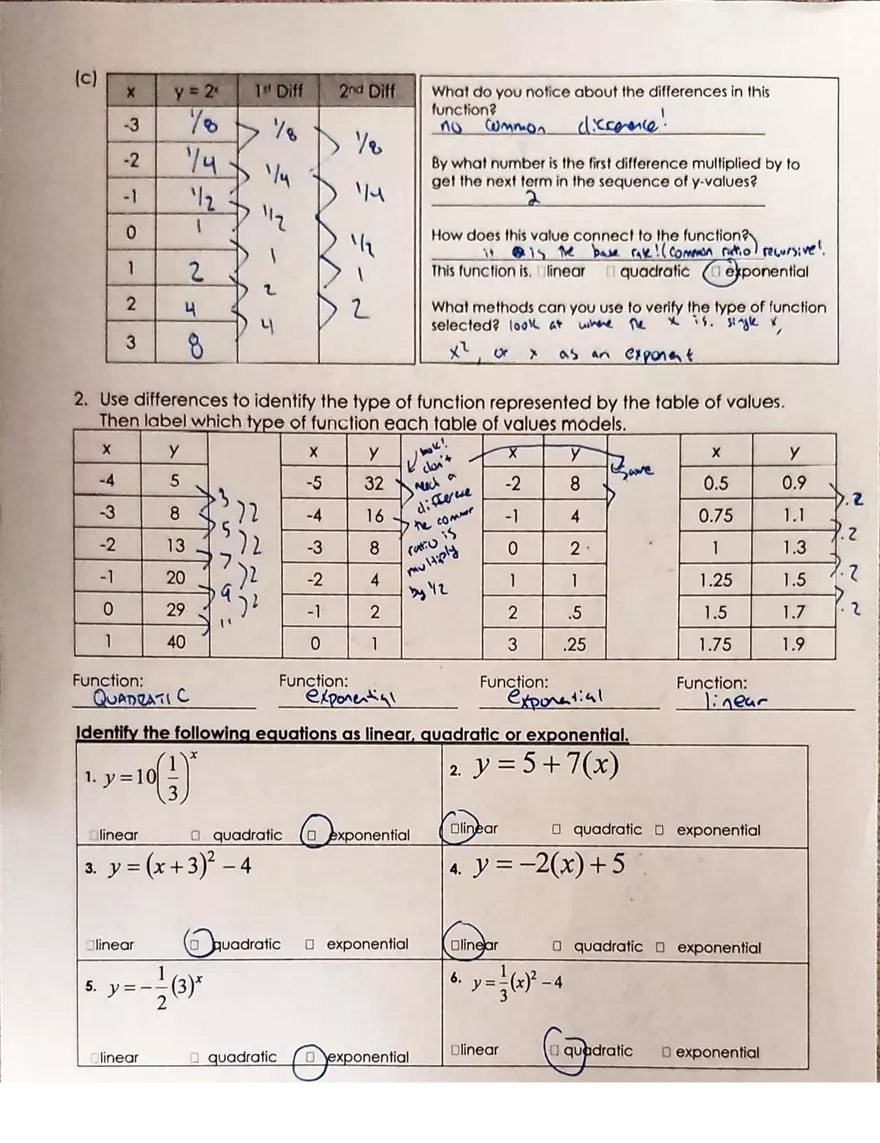 (c)
x y = 2ˣ 1st Diff 2nd Diff
-3 1/8
1/8 1/8
-2 1/4
1/4 1/4
-1 1/2
1/2 1/2
0 1
1 1
1 2
2 2
2 4
4
3 8
What do you notice about the differences in this
function?
no common difference!
By what number is the first difference multiplied by to
get the next term in the sequence of y-values?
2
How does this value connect to the function?
it is the base rate! (common ratio) recursive!
This function is. linear quadratic exponential
What methods can you use to verify the type of function
selected? look at where the x is. single x,
x², or x as an exponent
2. Use differences to identify the type of function represented by the table of values.
Then label which type of function each table of values models.
x y
-4 5
-3 8
-2 13
-1 20
0 29
1 40
3 5 7 9 11
2 2 2 2
x y
-5 32
-4 16
-3 8
-2 4
-1 2
0 1
look!
don't
need a
difference
the common
ratio is
multiply
by 1/2
x y
-2 8
-1 4
0 2
1 1
2 .5
3 .25
same
x y
0.5 0.9
0.75 1.1
1 1.3
1.25 1.5
1.5 1.7
1.75 1.9
.2
.2
.2
.2
Function: Function: Function: Function:
QUADRATIC exponential exponential linear
Identify the following equations as linear, quadratic or exponential.
1. y = 10(1/3)ˣ
linear quadratic exponential
2. y = 5 + 7(x)
linear quadratic exponential
3. y = (x + 3)² – 4
linear quadratic exponential
4. y = –2(x) + 5
linear quadratic exponential
5. y = –1/2(3)ˣ
linear quadratic exponential
6. y = 1/3(x)² – 4
linear quadratic exponential